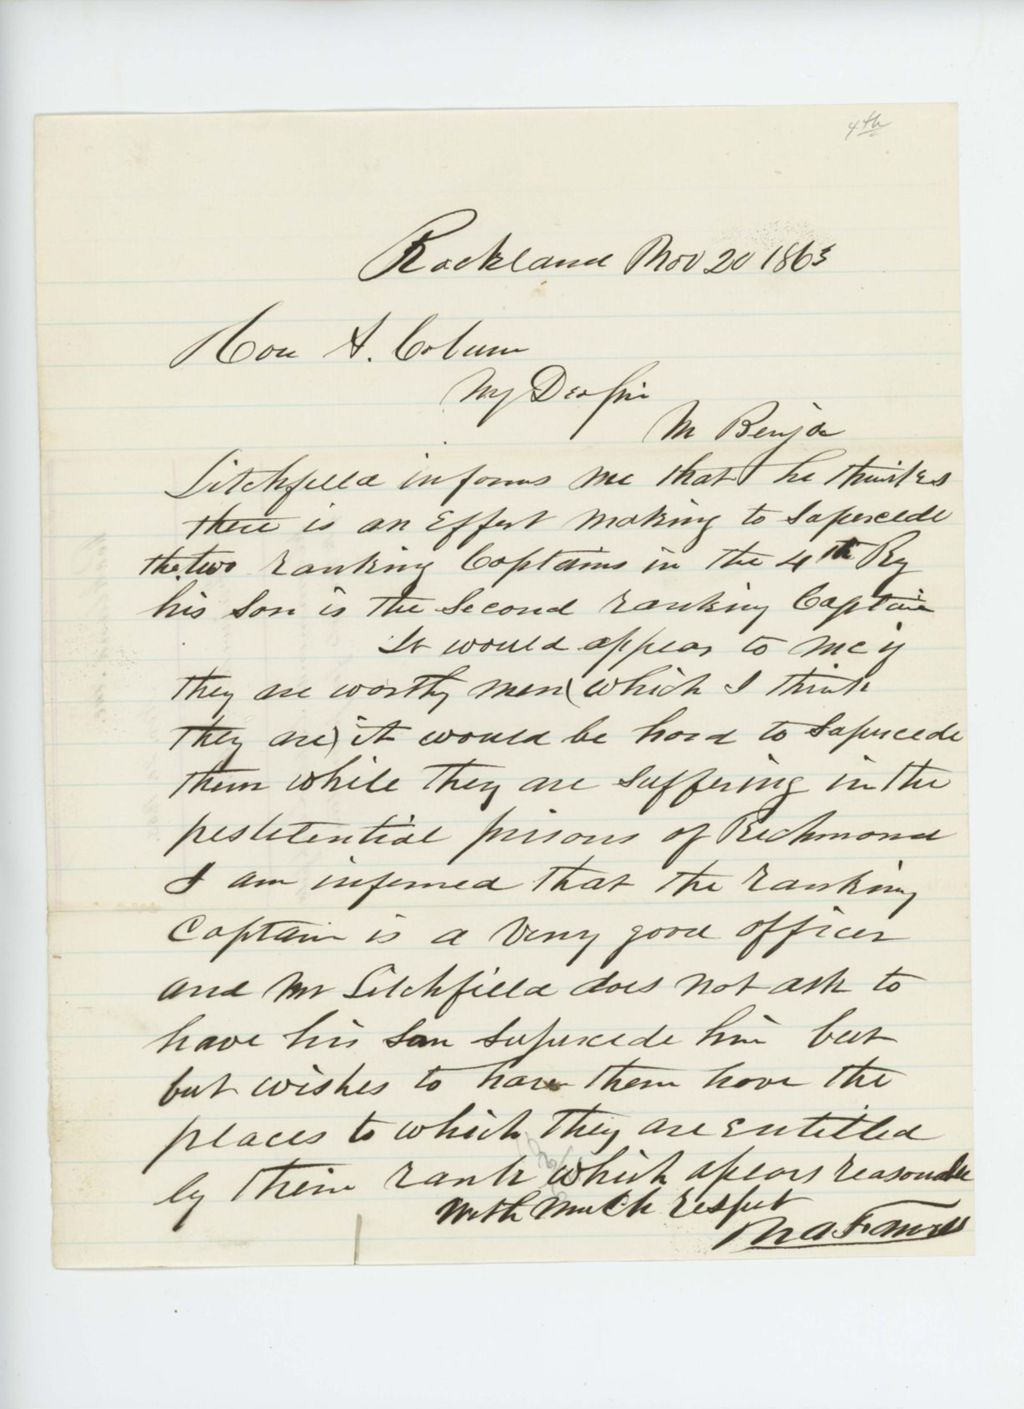 4th
Rockland Nov 20 1863
Hon A. Coburn
My Dear Sir
Mr Benja
Litchfield informs me that he thinks
there is an Effort making to Supercede
the two ranking Captains in the 4th Reg
his Son is the Second ranking Captain
It would appear to me if
they are worthy men (which I think
they are) it would be hard to Supercede
them while they are suffering in the
pestetential prisons of Richmond
I am informed that the ranking
Captain is a very good officer
and Mr Litchfield does not ask to
have his Son supercede him but
but wishes to have them have the
places to which they are entitled
by their rank which apears reasonable
With much respect
N A Farwell